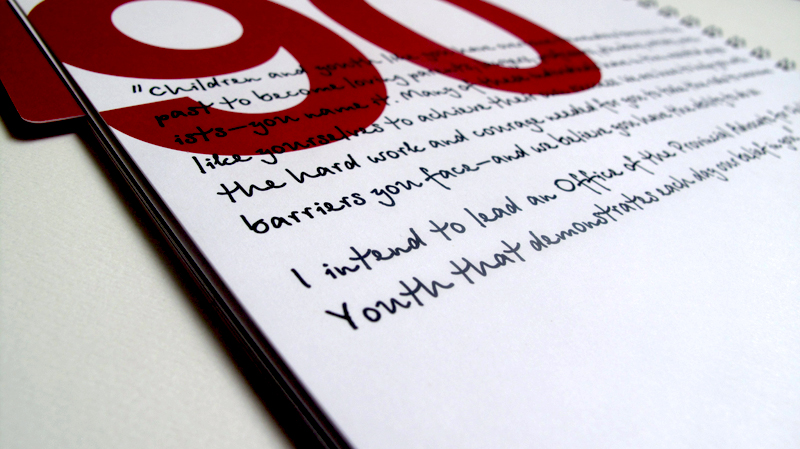 90
"Children and youth like you have
past to become loving parents,
ists—you name it. Many of them
like yourselves to achieve their
the hard work and courage needed for you to take
barriers you face—and we believe you have the ability to
I intend to lead an Office of the Provincial Advocate for
Youth that demonstrates each day our belief in you."